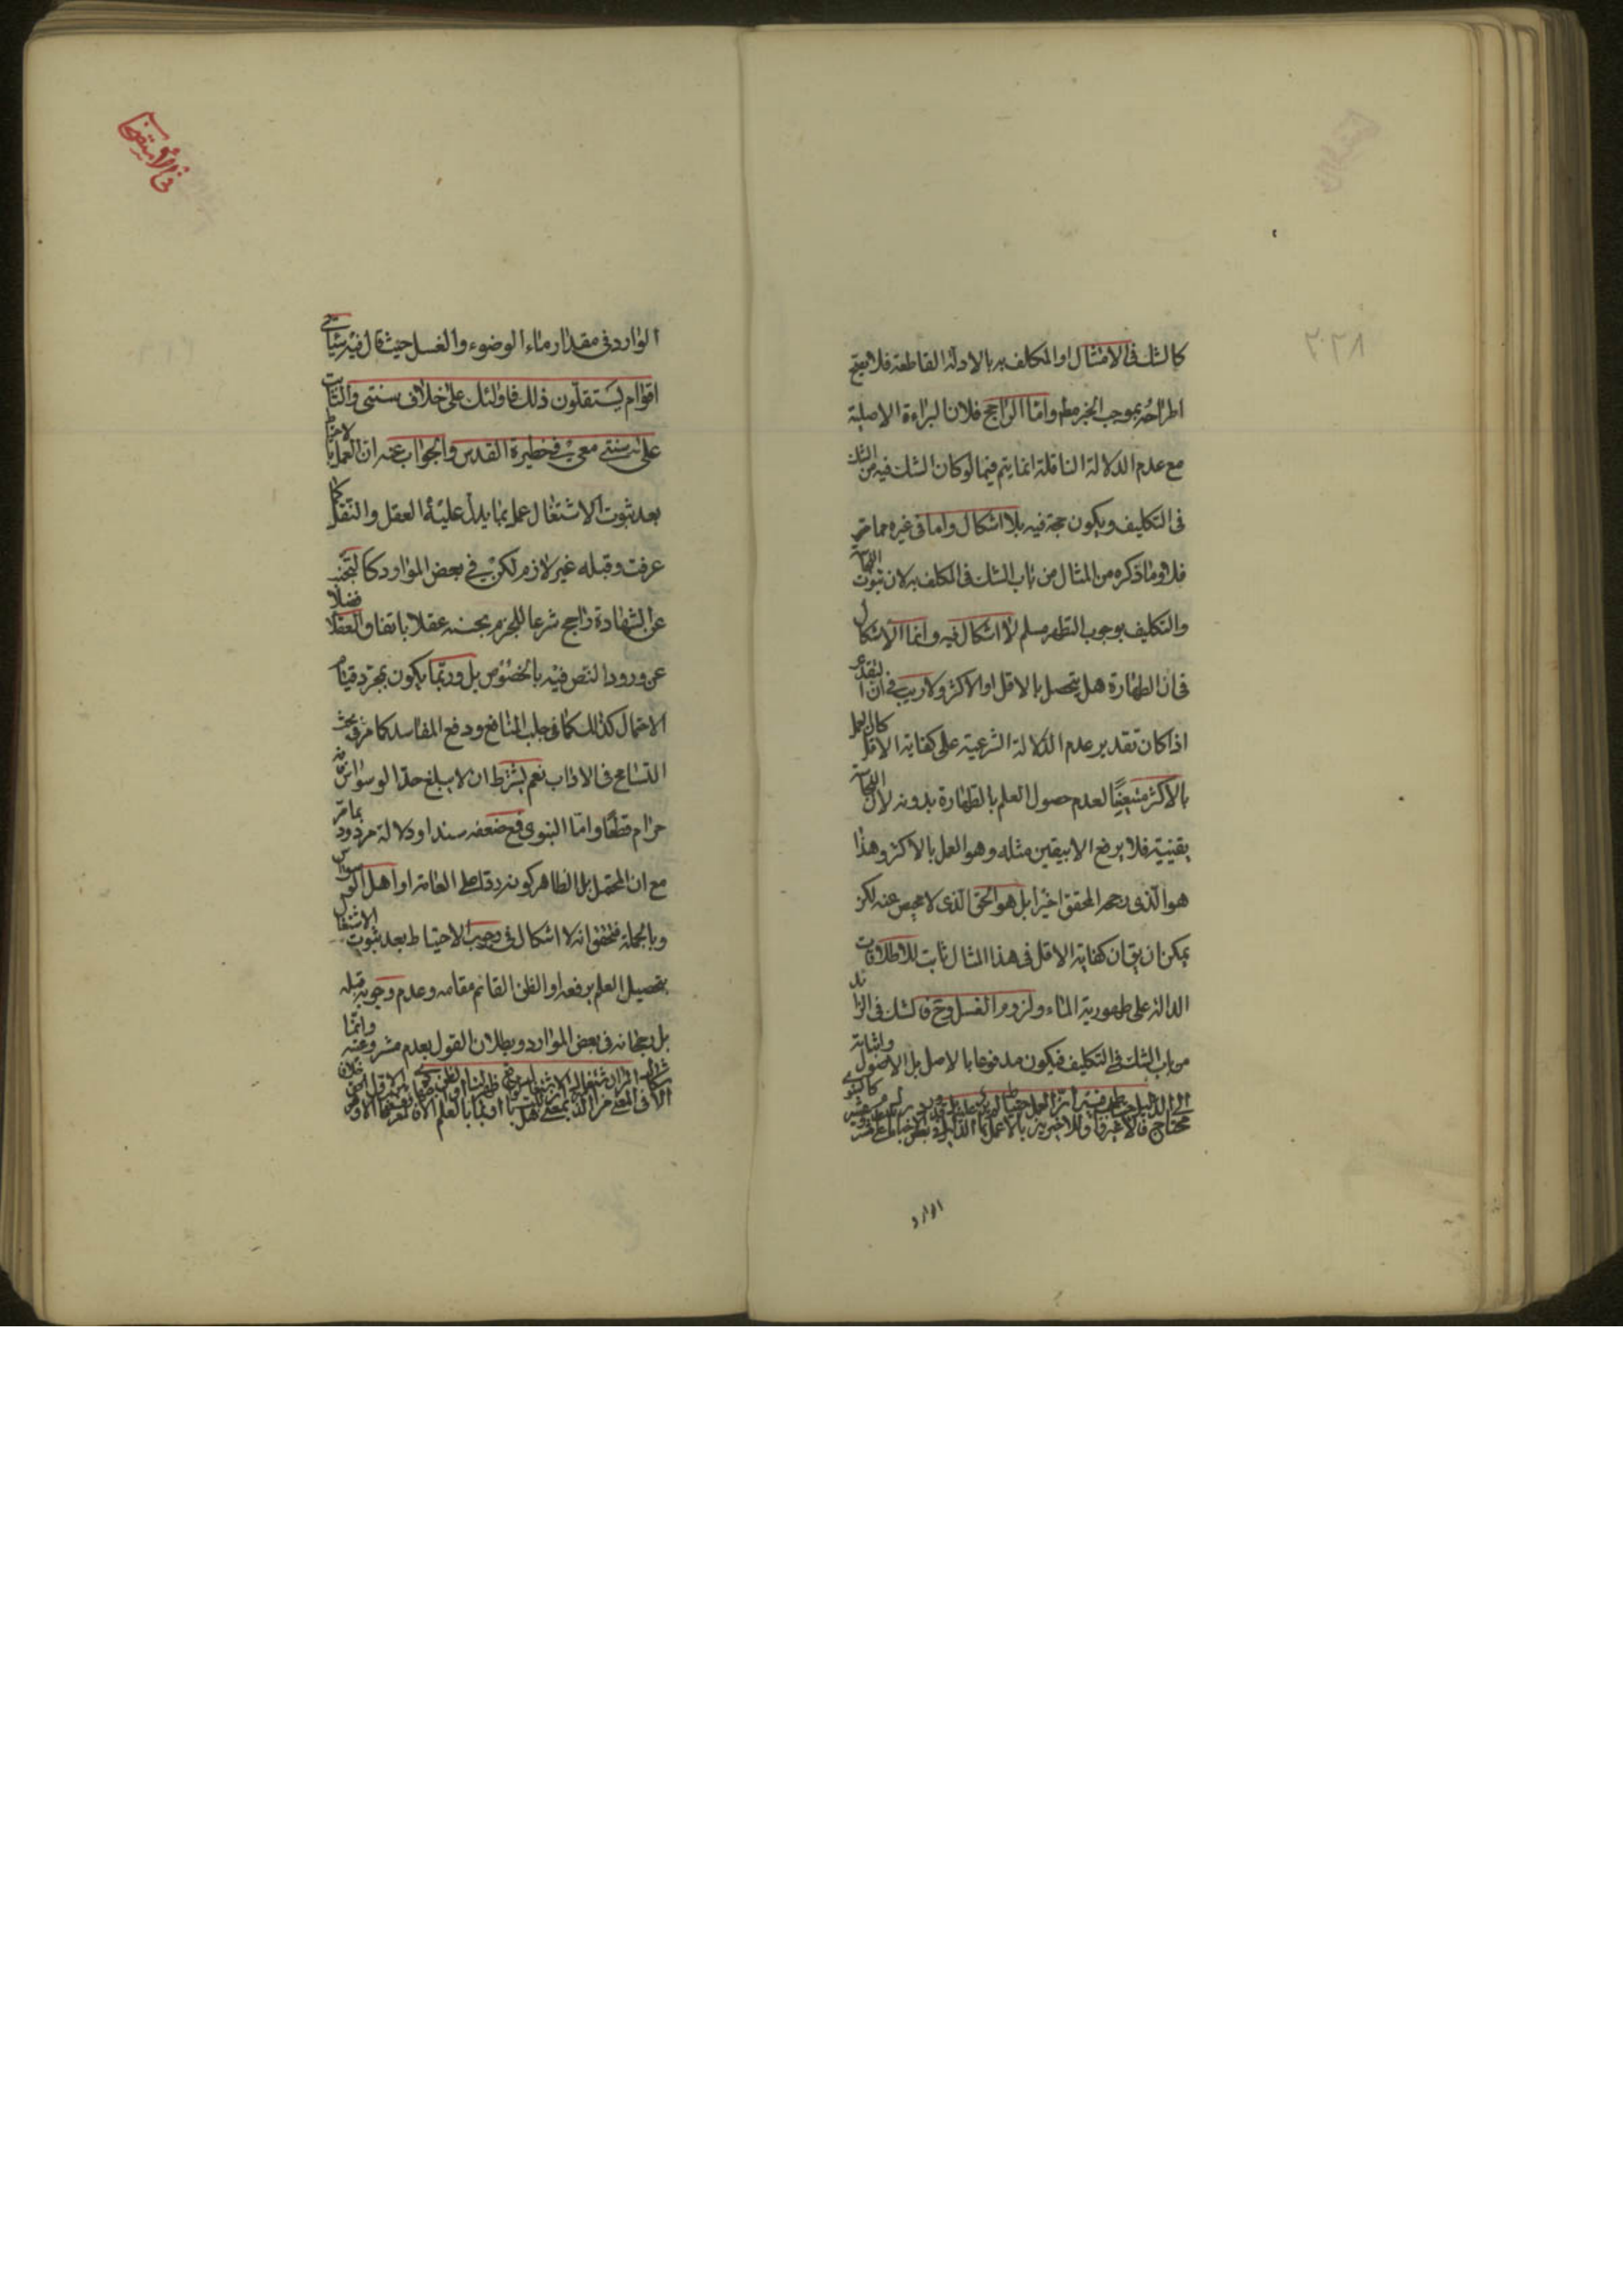 ٢٢٨
كالشك فى الامتثال او المكلف به بالادلة القاطعة فلا يصح
اطراحه بموجب الخبر مطم واما الرابع فلان البراءة الاصلية
مع عدم الدلالة الناقلة انما يتم فيما لو كان الشك فيه من الشك
فى التكليف ويكون حجة فيه بلا اشكال واما فى غيره مما مر
فلا وما ذكره من المثال من باب الشك فى المكلف به لان ثبوت النجاسة
والتكليف بوجوب التطهر مسلم لا اشكال فيه وانما الاشكال
فى ان الطهارة هل يتحصل بالاقل او الاكثر ولا ريب فى ان التقدير
اذا كان تقدير عدم الدلالة الشرعية على كفاية الاقل كان العمل
بالاكثر متعينا لعدم حصول العلم بالطهارة بدونه لان النجاسة
يقينية فلا يرفع الا بيقين مثله وهو العمل بالاكثر وهذا
هو الذى رجحه المحقق اخيرا بل هو الحق الذى لا محيص عنه لكن
يمكن ان يق ان كفاية الاقل فى هذا المثال ثابت للاطلاقات
الدالة على طهورية الماء ولزوم الغسل وح فالشك فى الزائد
من باب الشك فى التكليف فيكون مدفوعا بالاصل بل الاصول واثباته
محتاج الى الدليل
الوارد
فى الاستقصا
الوارد فى مقدار ماء الوضوء والغسل حيث قال فيه سياتى
اقوام يستقلون ذلك فاولئك على خلاف سنتى والثابت
على سنتى معى فى حظيرة القدس والجواب عنه ان العمل بالاحتياط
بعد ثبوت الاشتغال عمل بما يدل عليه العقل والنقل كما
عرفت وقبله غير لازم لكن فى بعض الموارد كالتجنب
عن الشهادة راجح شرعا للجزم بحسنه عقلا باتفاق العقلا فضلا
عن ورود النص فيه بالخصوص بل وربما يكون بمجرد قيام
الاحتمال كذلك كما فى جلب المنافع ودفع المفاسد كما مر فى بحث
التسامح فى الاداب نعم بشرط ان لا يبلغ حد الوسواس فانه
حرام قطعا واما النبوى فمع ضعفه سندا ودلالة مردود بما مر
مع ان المحتمل بل الظاهر كونه ردا على العامة او اهل الوسواس
وبالجملة فتحقق انه لا اشكال فى وجوب الاحتياط بعد ثبوت الاشتغال
بتحصيل العلم برفعه او الظن القائم مقامه وعدم وجوبه قبله
بل رجحانه فى بعض الموارد وبطلان القول بعدم مشروعيته وانما